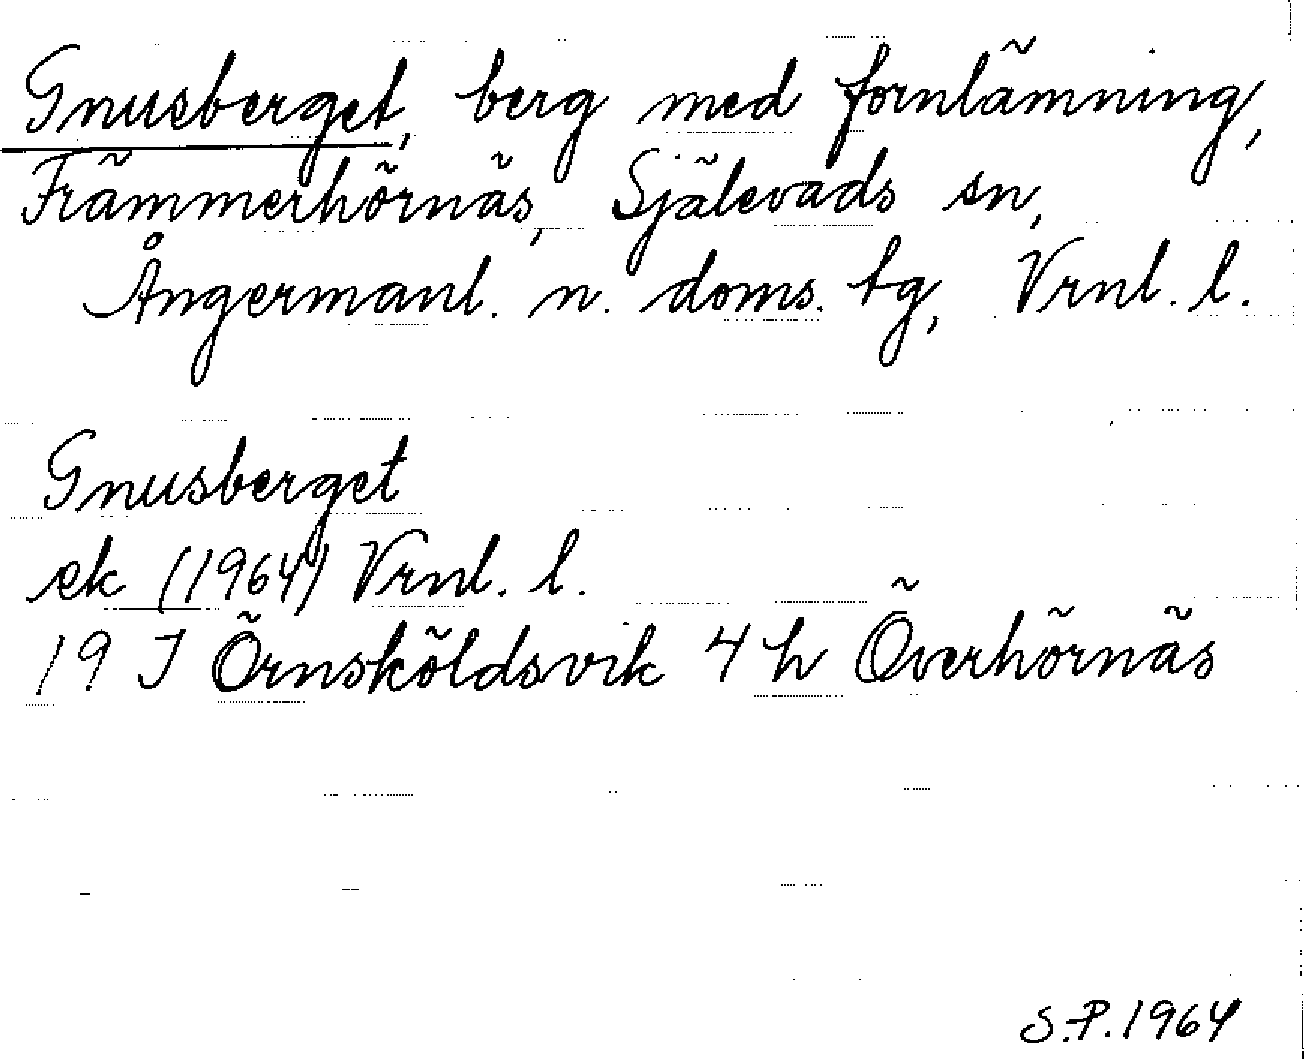 Gnusberget, berg med fornlämning,
Främmerhörnäs, Själevads sn,
Ångermanl. n. doms. tg, Vrnl. l.
Gnusberget
ek (1964) Vrnl. l.
19 J Örnsköldsvik 4 h Överhörnäs
S.P. 1964